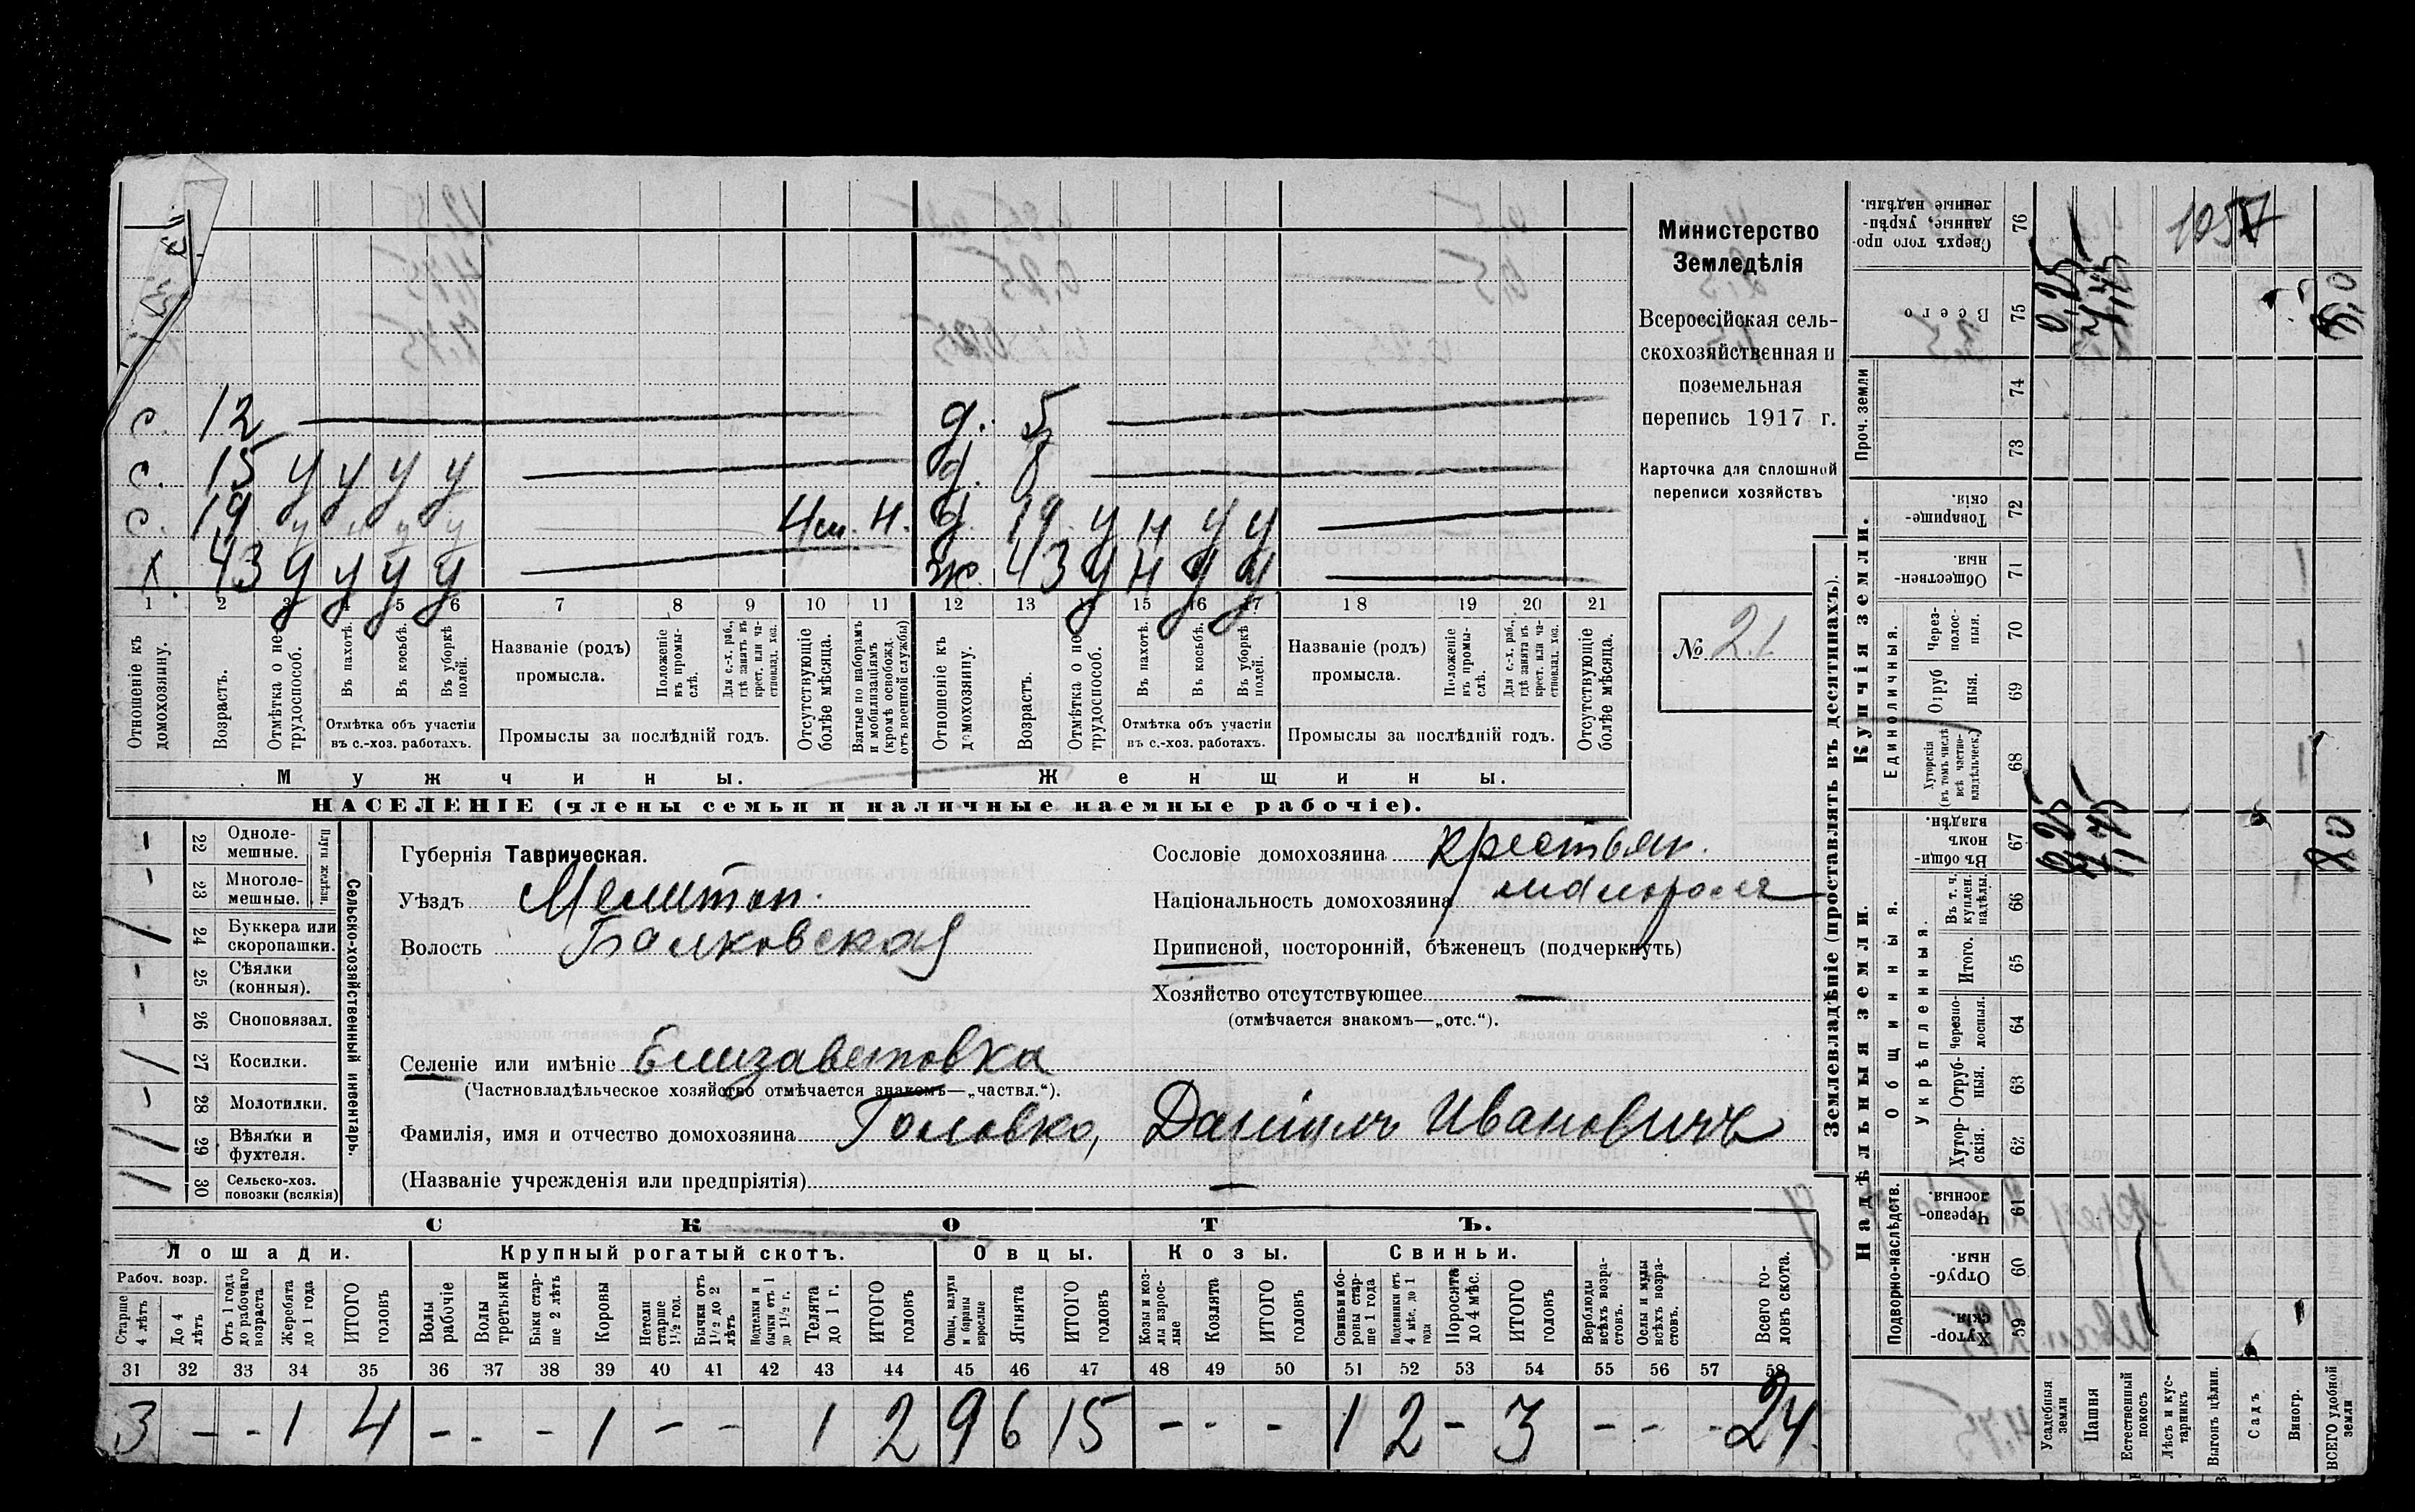 с. 12 — д. 5 —
с. 15 у у у у — д. 8 —
с. 19 у у у у 4 м. Н. д. 19 у н у у —
х. 43 у у у у — ж. 43 у н у у —
1 2 3 4 5 6 7 8 9 10 11 12 13 14 15 16 17 18 19 20 21
Отношеніе къ домохозяину.
Возрастъ.
Отмѣтка о нетрудоспособ.
Въ пахотѣ.
Въ косьбѣ.
Въ уборкѣ полей.
Отмѣтка объ участіи въ с.-хоз. работахъ.
Названіе (родъ) промысла.
Положеніе въ промыслѣ.
Для с.-х. раб., гдѣ занятъ въ крест. или частновлад. хоз.
Промыслы за послѣдній годъ.
Отсутствующіе болѣе мѣсяца.
Взятые по наборамъ и мобилизаціямъ (кромѣ освобожд. отъ военной службы)
Отношеніе къ домохозяину.
Возрастъ.
Отмѣтка о нетрудоспособ.
Въ пахотѣ.
Въ косьбѣ.
Въ уборкѣ полей.
Отмѣтка объ участіи въ с.-хоз. работахъ.
Названіе (родъ) промысла.
Положеніе въ промыслѣ.
Для с.-х. раб., гдѣ занята въ крест. или частновлад. хоз.
Промыслы за послѣдній годъ.
Отсутствующіе болѣе мѣсяца.
Мужчины. Женщины.
НАСЕЛЕНІЕ (члены семьи и наличные наемные рабочіе).
Министерство
Земледѣлія
Всероссійская сель-
скохозяйственная и
поземельная
перепись 1917 г.
Карточка для сплошной
переписи хозяйствъ
№ 21.
Сельско-хозяйственный инвентарь.
Плуги желѣзн.
– 22 Однолемешные.
– 23 Многолемешные.
/ 24 Буккера или скоропашки.
– 25 Сѣялки (конныя).
– 26 Сноповязал.
/ 27 Косилки.
– 28 Молотилки.
/ 29 Вѣялки и фухтеля.
// 30 Сельско-хоз. повозки (всякія)
Губернія Таврическая.
Уѣздъ Мелитоп.
Волость Балковская
Сословіе домохозяина крестьян.
Національность домохозяина малоросс
Приписной, посторонній, бѣженецъ (подчеркнуть)
Хозяйство отсутствующее —
(отмѣчается знакомъ—„отс.“).
Селеніе или имѣніе Елизаветовка
(Частновладѣльческое хозяйство отмѣчается знакомъ—„частвл.“).
Фамилія, имя и отчество домохозяина Головко, Даніилъ Ивановичъ
(Названіе учрежденія или предпріятія) —
СКОТЪ.
Лошади. Крупный рогатый скотъ. Овцы. Козы. Свиньи.
Рабоч. возр.
Старше 4 лѣтъ
До 4 лѣтъ
Отъ 1 года до рабочаго возраста
Жеребята до 1 года
ИТОГО головъ
Волы рабочіе
Волы третьяки
Быки старше 2 лѣтъ
Коровы
Нетели старше 1½ год.
Бычки отъ 1½ до 2 лѣтъ
Подтелки и бычки отъ 1 до 1½ г.
Телята до 1 г.
ИТОГО головъ
Овцы, валухи и бараны взрослые
Ягнята
ИТОГО головъ
Козы и козлы взрослые
Козлята
ИТОГО головъ
Свиньи и боровы старше 1 года
Подсвинки отъ 4 мѣс. до 1 года
Поросята до 4 мѣс.
ИТОГО головъ
Верблюды всѣхъ возрастовъ.
Ослы и мулы всѣхъ возрастовъ.
Всего головъ скота.
31 32 33 34 35 36 37 38 39 40 41 42 43 44 45 46 47 48 49 50 51 52 53 54 55 56 57 58
3 – – 1 4 – – – 1 – – 1 2 9 6 15 – – – 1 2 – 3 – – – 24
Землевладѣніе (проставлять въ десятинахъ).
Надѣльныя земли. Купчія земли.
Сверхъ того проданные, укрѣпленные надѣлы. 76
Всего 75
Проч. земли 74 73
Товарищескія. 72
Общественныя. 71
Единоличныя.
Черезполосныя. 70
Отрубныя. 69
Хуторскія (въ томъ числѣ всѣ частновладѣльческ.) 68
Общинныя.
Въ общинномъ владѣн. 67
Укрѣпленныя.
Въ т. ч. куплен. надѣлы. 66
Итого. 65
Черезполосныя. 64
Отрубныя. 63
Хуторскія. 62
Подворно-наслѣдств.
Черезполосныя. 61
Отрубныя. 60
Хуторскія. 59
1057
0,25
8,0
0,25
8,0
Усадебныя земли
Пашня
Естественный покосъ
Лѣсъ и кустарникъ
Выгонъ цѣлин.
Садъ
Виногр.
ВСЕГО удобной земли